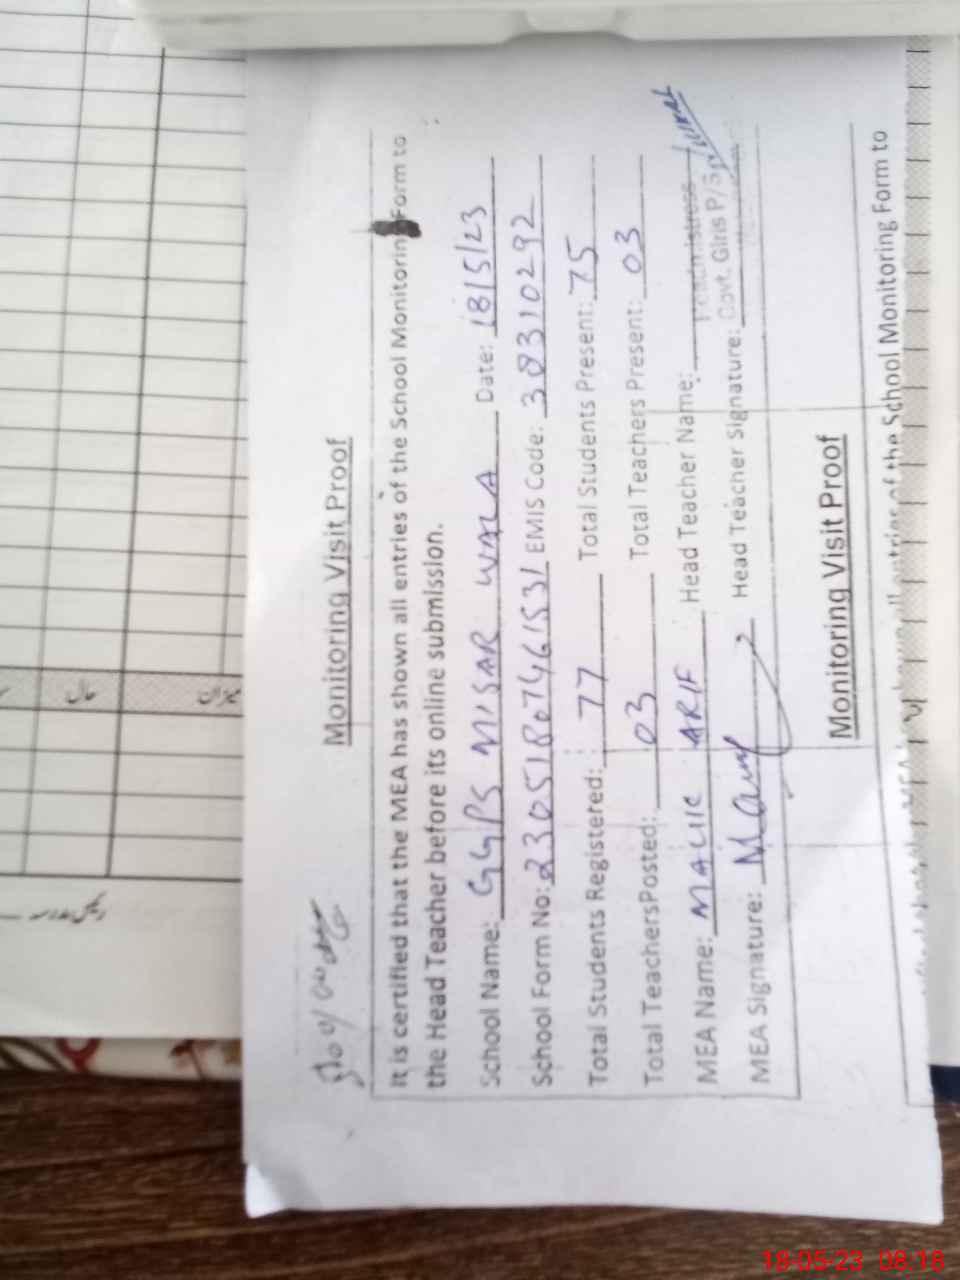 Monitoring Visit Proof
It is certified that the MEA has shown all entries of the School Monitoring Form to
the Head Teacher before its online submission.
School Name: GGPS MISAR WALA Date: 18/5/23
School Form No: 230518074461531 EMIS Code: 38310292
Total Students Registered: 77 Total Students Present: 75
Total TeachersPosted: 03 Total Teachers Present: 03
MEA Name: MALIK ARIF Head Teacher Name: Headmistress
MEA Signature: Head Teacher Signature: Govt. Girls P/S
Monitoring Visit Proof
all entries of the School Monitoring Form to
حال
میزان
18-05-23 08:18